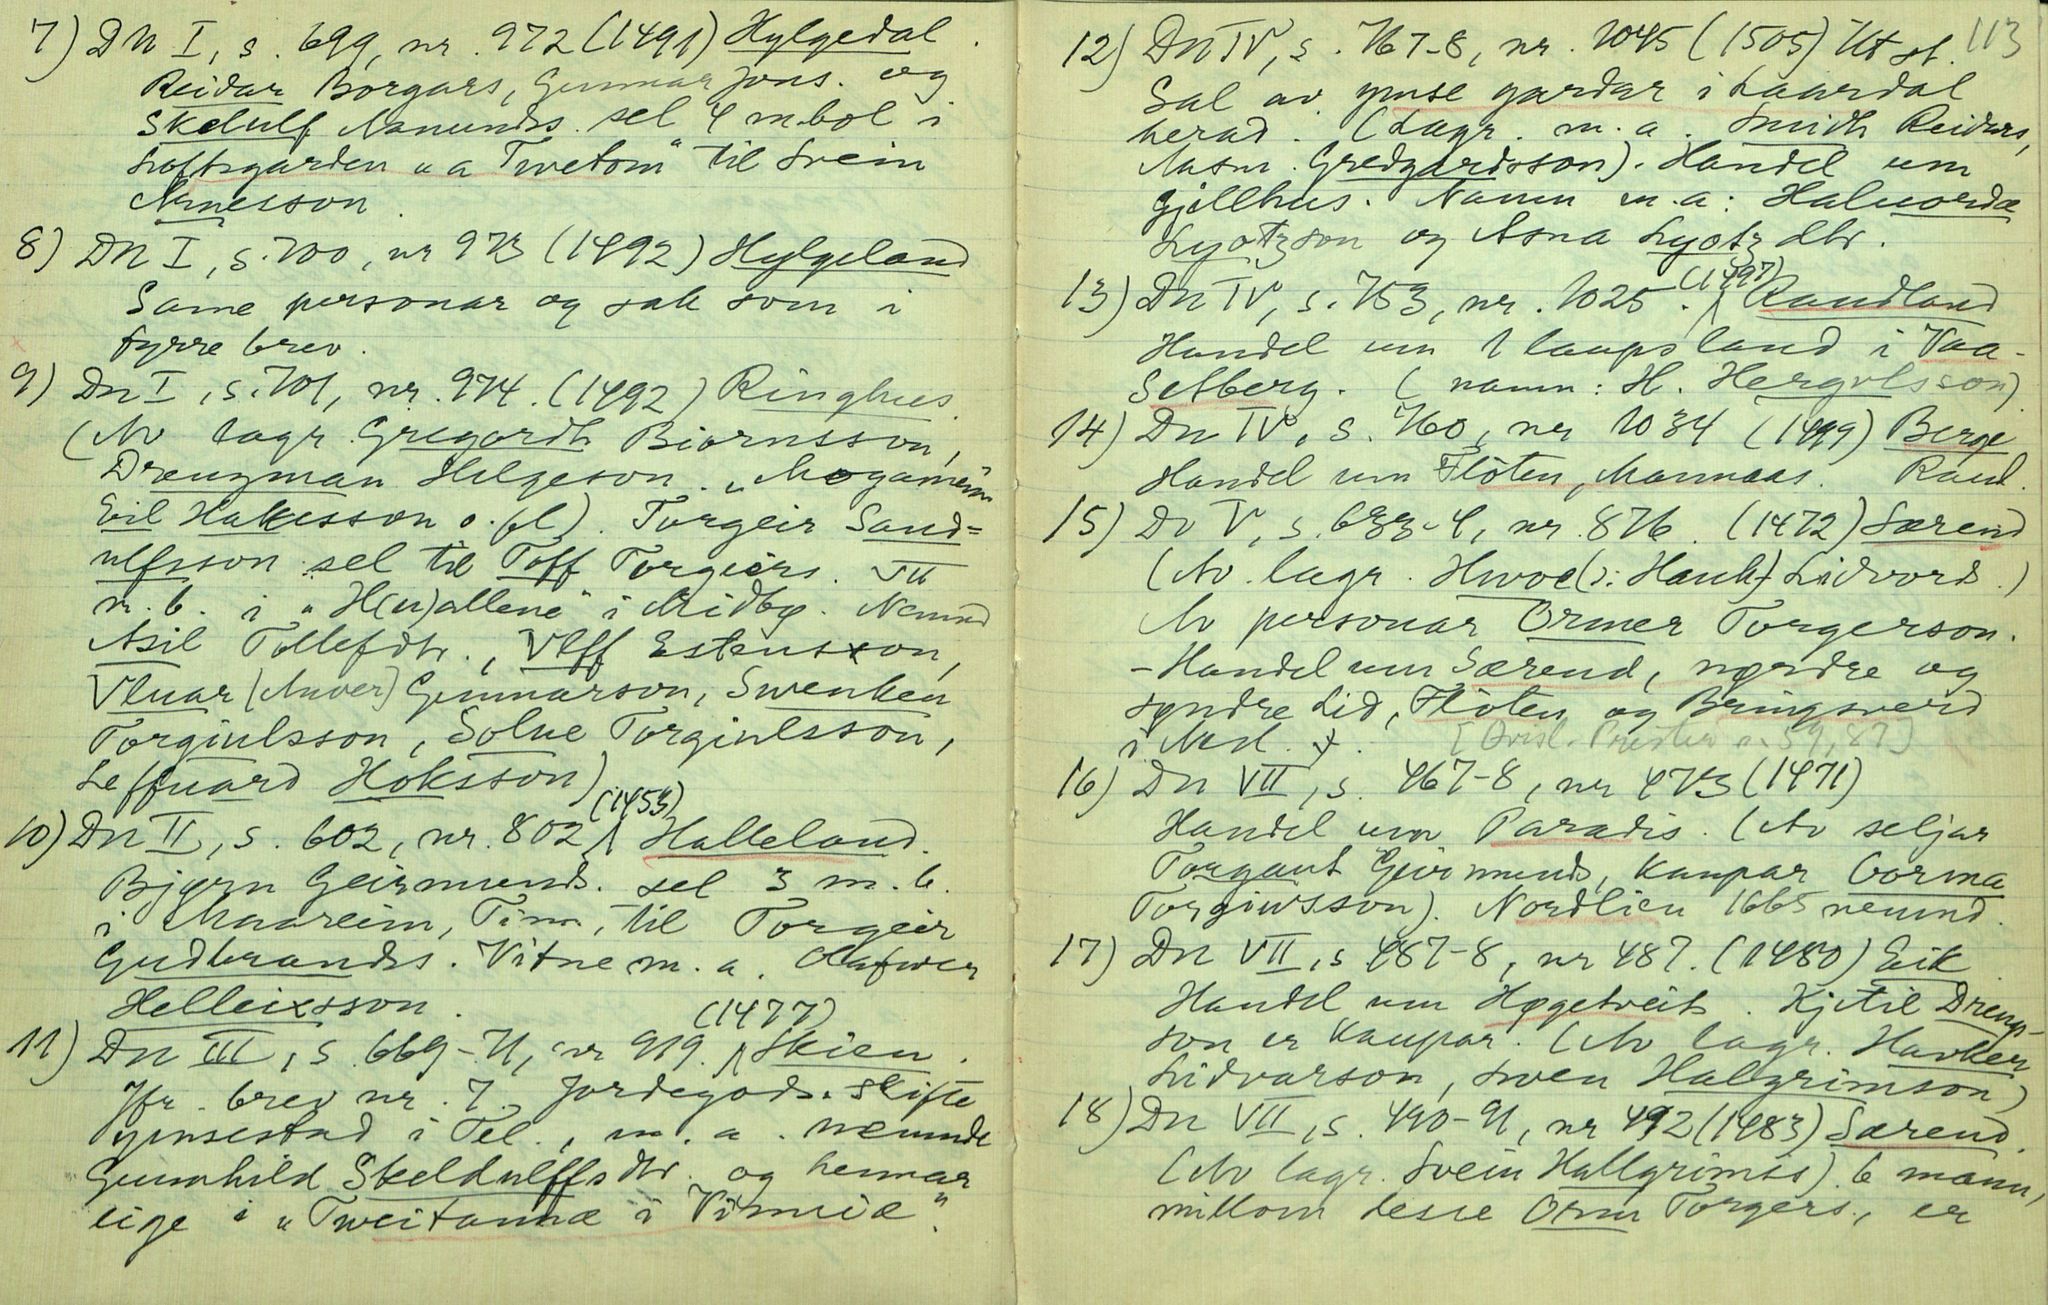 7) DN I, s. 699, nr. 972 (1491) Hylgedal.
Reidar Borgars, Gunnar Jons. og
Skelulf Aamunds. sel 4 m.bol i
Loftsgarden "a Tvetom" til Svein
Arnesson.
8) DN I, s. 700, nr 973 (1492) Hylgeland
Same personar og sak som i
fyrre brev.
9) Dn I, s. 701, nr. 974. (1492) Ringhus.
(Av lagr. Gregardh Biornsson,
Drengman Helgeson.
Eil Hakesson o. fl). Torgeir Sand=
ulfsson sel til Toff Torgiers. VII
m. b. i "H(u)allene" i Midbø. Nemnd
Asil Tollefdtr., Vlff Estensson,
Vluar (Anver) Gunnarson, Swenken
Torgiulsson, Solue Torgiulsson,
Leffuard Hoksson)
10) Dn II, s. 602, nr. 802 (1453) Halleland.
Bjørn Geirmunds. sel 3 m. b.
i Maareim, Tinn, til Torgeir
Gudbrands. Vitne m. a. Olafwer
Helleixsson.
(1477)
11) Dn III, s. 669-71, nr 919. Skien.
Jfr. brev nr. 7. Jordegods. skifte
ymsestad i Tel., m. a. nemnde
Gunnhild Skeldulffsdtr. og hennar
eige i "Tweitannæ i Vinnie".
113
12) Dn IV, s. 767-8, nr. 1045 (1505) Utst.
Sal av ymse gardar i Laardal
herad. (Lagr. m. a. Smidh Reidars,
Aasm. Gredgardsson). Handel um
Gjellhus. Namn m. a: Haluorda
Lyotzson og Asna Lyotz dtr.
13) Dn IV, s. 753, nr. 1025. (1497) Raudland
Handel um 1 laupsland i Vaa-
Setberg. (namn: H. Hergulsson)
14) Dn IV, s. 760, nr 1034 (1499) Berge
Handel um Fløten, Mannaas. Raul.
15) Dn V, s. 633-4, nr. 876. (1472) Særend
(Av lagr. Hwoe (ɔ: Hauk) Lidvords.)
Av personar Ormer Torgerson.
- Handel um Særend, nørdre og
syndre Lid, Fløten og Bringsverd
i Mosl.
59, 87]
16) Dn VII, s. 467-8, nr 473 (1471)
Handel um Paradis. (Av seljar
Torgaut Geirmunds, kaupar Gorma
Torgiusson). Nordlien 1665 nemnd.
17) Dn VII, s 487-8, nr 487. (1480) Eik
Handel um Høgetveit. Kjetil Dreng-
son er kaupar. (Av lagr. Havker
Lidvarson, Swen Halgrimson)
18) Dn VII, s. 490-91, nr 492 (1483) Særend.
(Av lagr. Svein Hallgrims). 6 mann,
millom desse Orm Torgers., er